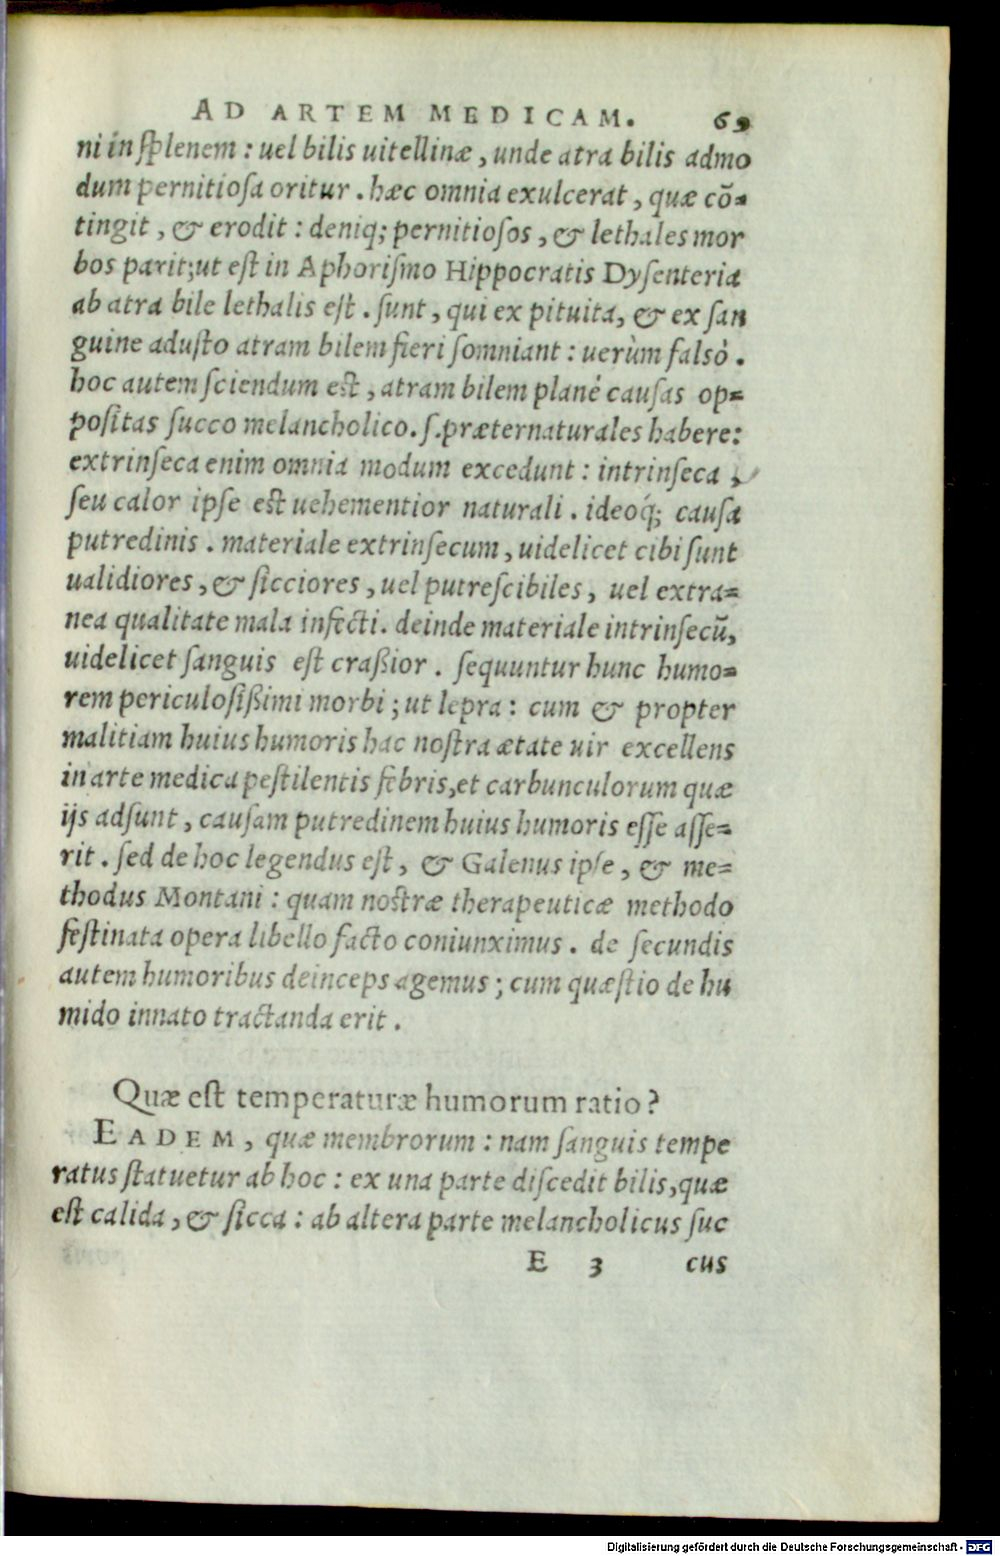 AD ARTEM MEDICAM. 69
ni in ſplenem : uel bilis uitellinæ , unde atra bilis admo
dum pernitioſa oritur . hæc omnia exulcerat , quæ cō-
tingit , & erodit : deniq; pernitioſos , & lethales mor
bos parit;ut eſt in Aphoriſmo Hippocratis Dyſenteria
ab atra bile lethalis eſt . ſunt , qui ex pituita, & ex ſan
guine aduſto atram bilem fieri ſomniant : uerùm falsò .
hoc autem ſciendum eſt , atram bilem planè cauſas op-
poſitas ſucco melancholico. ſ. præternaturales habere:
extrinſeca enim omnia modum excedunt : intrinſeca ,
ſeu calor ipſe eſt uehementior naturali . ideoq́; cauſa
putredinis . materiale extrinſecum , uidelicet cibi ſunt
ualidiores , & ſicciores , uel putreſcibiles , uel extra-
nea qualitate mala infecti. deinde materiale intrinſecū,
uidelicet ſanguis eſt craßior . ſequuntur hunc humo-
rem periculoſißimi morbi ; ut lepra : cum & propter
malitiam huius humoris hac noſtra ætate uir excellens
in arte medica peſtilentis febris,et carbunculorum quæ
ijs adſunt , cauſam putredinem huius humoris eſſe aſſe-
rit . ſed de hoc legendus eſt , & Galenus ipſe , & me-
thodus Montani : quam noſtræ therapeuticæ methodo
feſtinata opera libello facto coniunximus . de ſecundis
autem humoribus deinceps agemus ; cum quæſtio de hu
mido innato tractanda erit .
Quæ eſt temperaturæ humorum ratio ?
EADEM , quæ membrorum : nam ſanguis tempe
ratus ſtatuetur ab hoc : ex una parte diſcedit bilis,quæ
eſt calida , & ſicca : ab altera parte melancholicus ſuc
E 3 cus
Digitalisierung gefördert durch die Deutsche Forschungsgemeinschaft - DFG